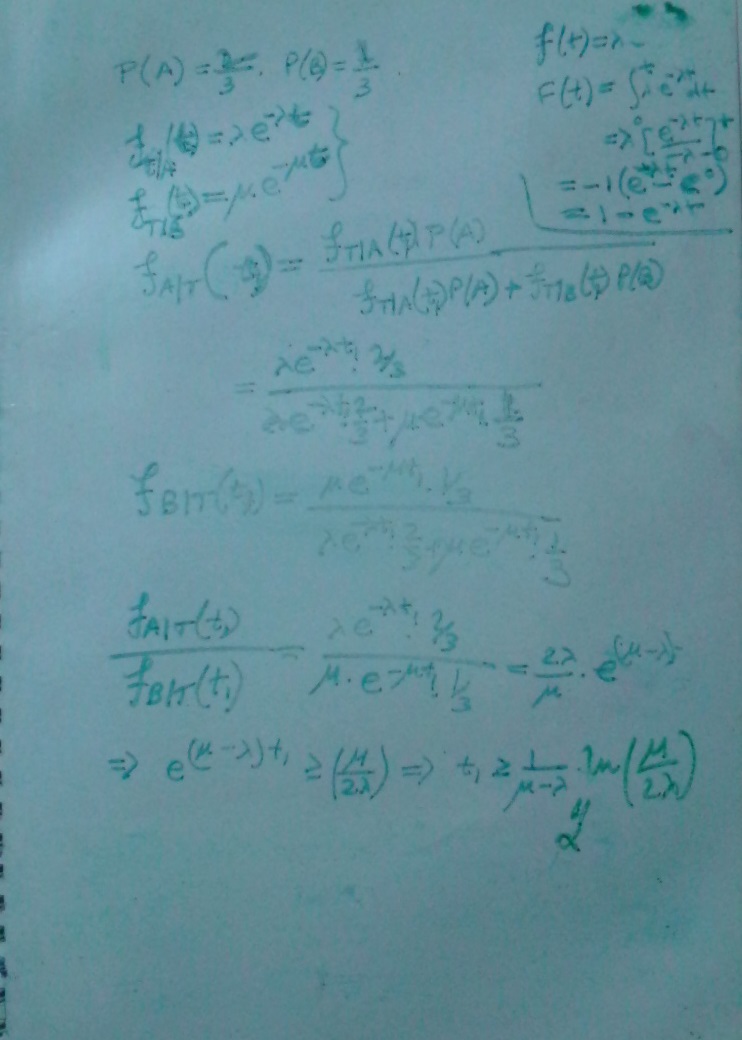 P(A) = 2/3. P(B) = 1/3.
f_T|A(t) = λe^-λt
f_T|B(t) = μ.e^-μt
f(t) = λ
F(t) = ∫₀^t λ e^-λt dt
= λ[e^-λt/-λ-0]^t
= -1(e^-λt - e^0)
= 1 - e^-λt
f_A|T(t₁) = f_T|A(t₁)P(A) / f_T|A(t₁)P(A) + f_T|B(t₁)P(B)
= λe^-λt₁.2/3 / λe^-λt₁.2/3 + μe^-μt₁.1/3
f_B|T(t₁) = μe^-μt₁.1/3 / λe^-λt₁.2/3 + μe^-μt₁.1/3
f_A|T(t₁) / f_B|T(t₁) = λe^-λt₁.2/3 / μ.e^-μt₁.1/3 = 2λ/μ . e^(μ-λ)
⇒ e^(μ-λ)t₁ ≥ (μ/2λ) ⇒ t₁ ≥ 1/μ-λ .ln(μ/2λ)